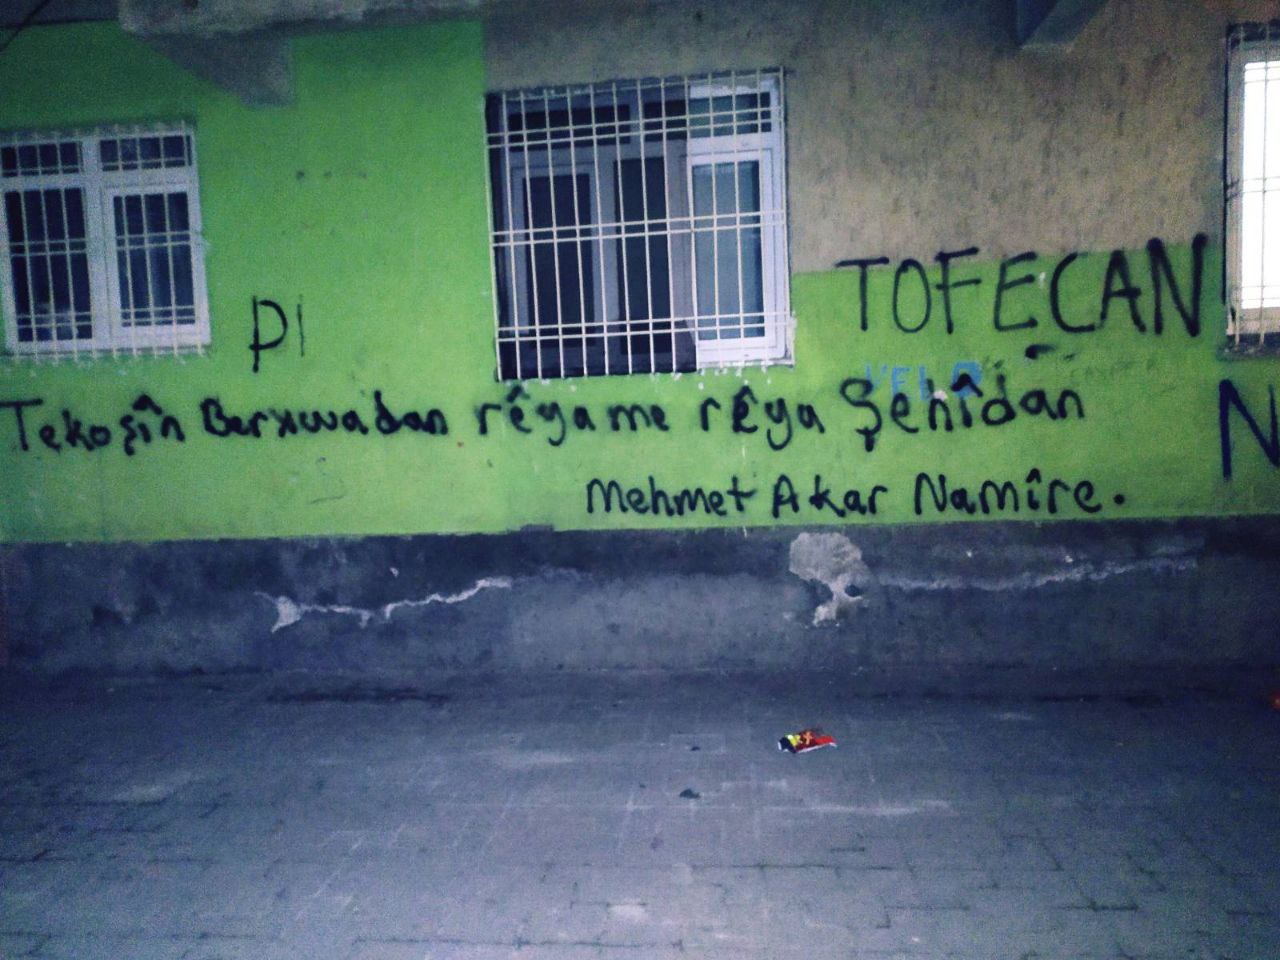 TOFEÇCAN
PI
VELO
Tekoşîn Berxwadan rêya me rêya Şehîdan
N
Mehmet Akar Namîre.